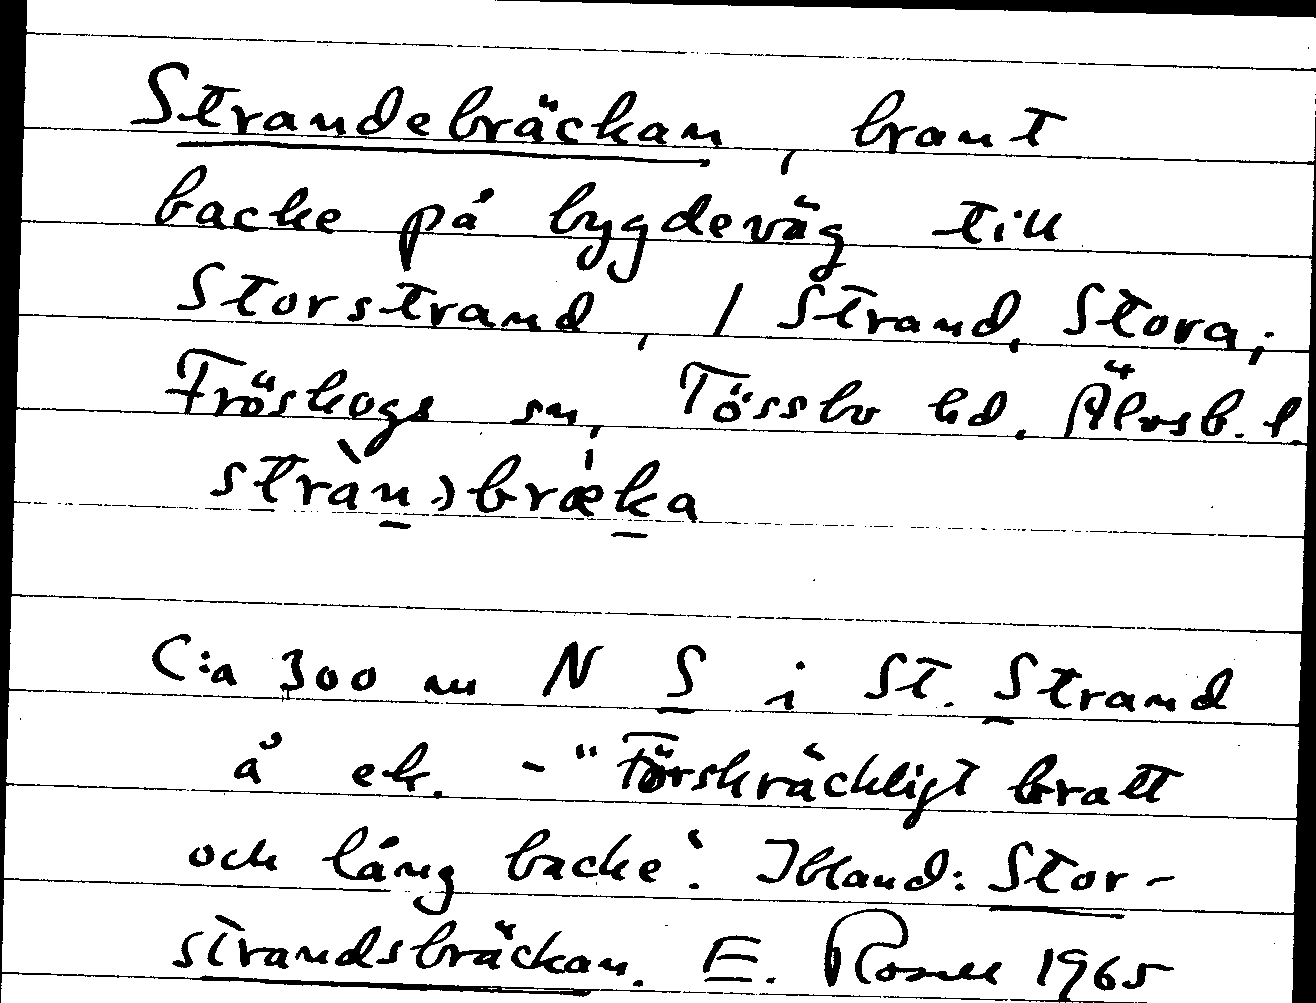 Strandebräckan, brant
backe på bygdeväg till
Storstrand, / Strand, Stora;
Fröskogs sn, Tössbo hd. Älvsb. l.
stràn)bræka
C:a 300 m N S i St. Strand
å ek. - "Förskräckligt bratt
och lång backe". Ibland: Stor-
strandsbräckan. E. 1965